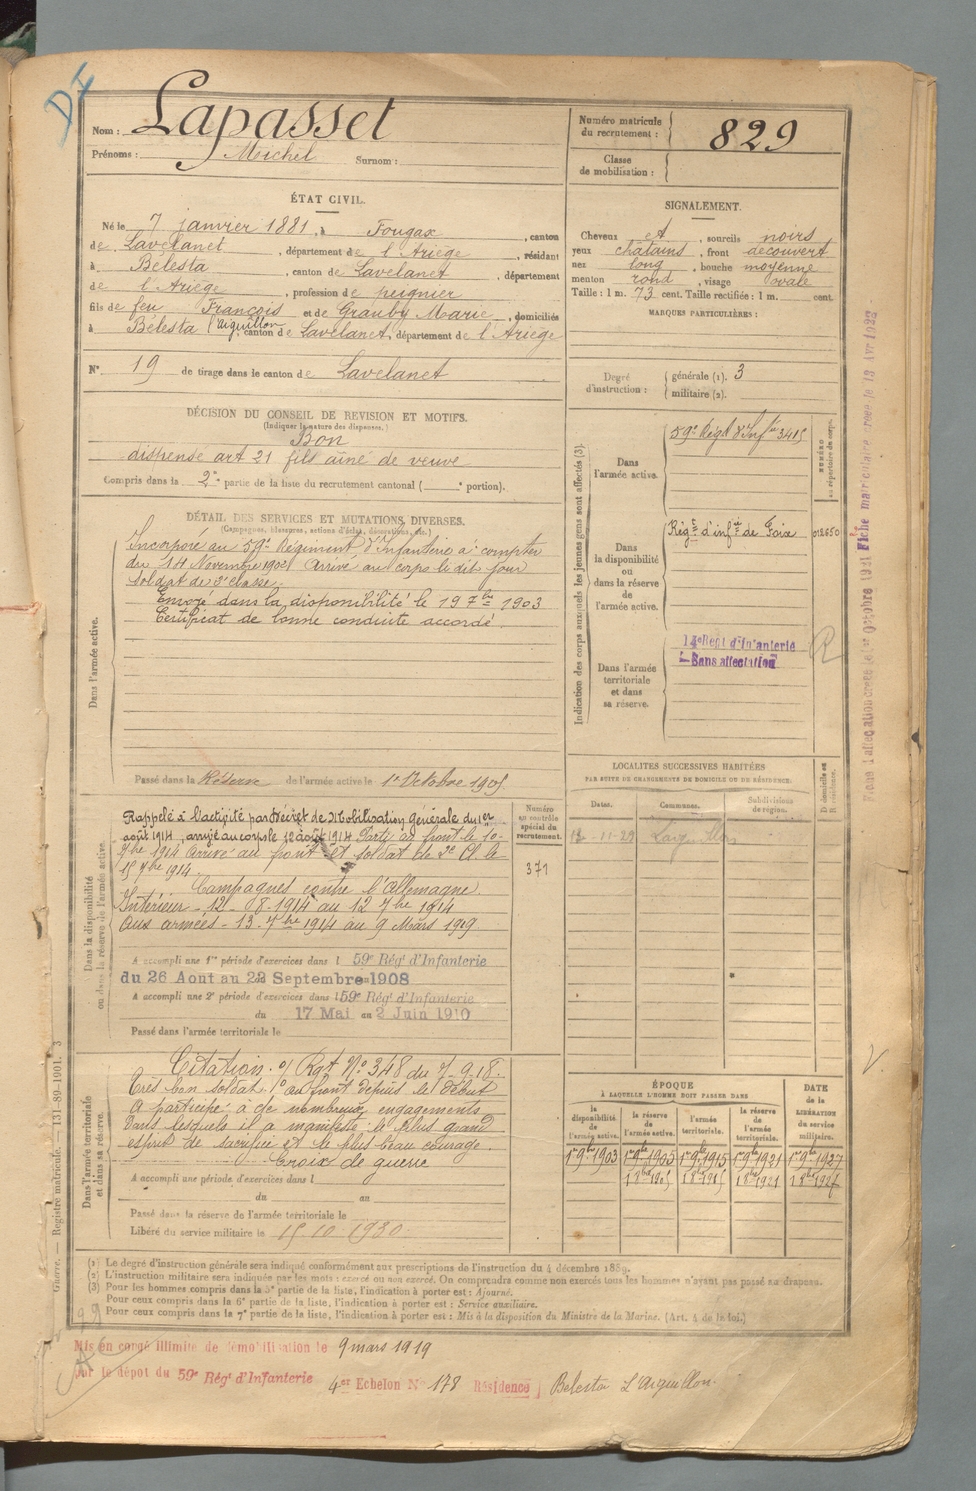 DI
Nom : Lapasset
Prénoms : Michel Surnom :
Numéro matricule
du recrutement : 829
Classe
de mobilisation :
ÉTAT CIVIL.
Né le 7 janvier 1881, à Fougax, canton
de Lavelanet, département de l'Ariège, résidant
à Bélesta, canton de Lavelanet, département
de l'Ariège, profession de peignier
fils de feu François et de Grauby Marie, domiciliés
à Bélesta l'aiguillon, canton de Lavelanet, département de l'Ariège
N° 19 de tirage dans le canton de Lavelanet
SIGNALEMENT.
Cheveux et, sourcils noirs
yeux chatains, front découvert
nez long, bouche moyenne
menton rond, visage ovale
Taille : 1 m. 73 cent. Taille rectifiée : 1 m. cent.
MARQUES PARTICULIÈRES :
Degré
d'instruction :
générale (1). 3
militaire (2).
DÉCISION DU CONSEIL DE REVISION ET MOTIFS.
(Indiquer la nature des dispenses.)
Bon
dispensé art 21 fils aîné de veuve
Compris dans la 2e partie de la liste du recrutement cantonal ( e portion).
DÉTAIL DES SERVICES ET MUTATIONS DIVERSES.
(Campagnes, blessures, actions d'éclat, décorations, etc.)
Dans l'armée active.
Incorporé au 59e Régiment d'Infanterie à compter
du 14 Novembre 1902 Arrivé au corps le dit jour
soldat de 2e classe.
Envoyé dans la disponibilité le 19 7bre 1903
Certificat de bonne conduite accordé.
Passé dans la Réserve de l'armée active le 1er Octobre 1905
Indication des corps auxquels les jeunes gens sont affectés (3).
Dans
l'armée active.
59e Régt d'Infie 3415
NUMÉRO
au répertoire du corps.
Dans
la disponibilité
ou
dans la réserve
de
l'armée active.
Régt d'infie de Foix
012650
Dans l'armée
territoriale
et dans
sa réserve.
d'Infanterie
Sans affectation
R
Fiche matricule
LOCALITÉS SUCCESSIVES HABITÉES
PAR SUITE DE CHANGEMENTS DE DOMICILE OU DE RÉSIDENCE.
Dates. Communes. Subdivisions
de région.
D domicile ou
R résidence.
-11-29
Dans la disponibilité
ou dans la réserve de l'armée active.
Rappelé à l'activité par Décret de Mobilisation générale du 1er
août 1914 arrivé au corps le 12 août 1914 Parti au front le 10
7bre 1914 Arrivé au front et soldat de 2e Cl. le
15 7bre 1914
Campagnes contre l'Allemagne.
Intérieur - 12-08-1914 au 12 7bre 1914
Aux armées - 13-7bre 1914 au 9 Mars 1919
Numéro
au contrôle
spécial du
recrutement.
371
A accompli une 1re période d'exercices dans l 59e Rég' d'Infanterie
du 26 Aout au 22 Septembre 1908
A accompli une 2e période d'exercices dans l 59e Rég' d'Infanterie
du 17 Mai au 2 Juin 1910
Passé dans l'armée territoriale le
Dans l'armée territoriale
et dans sa réserve.
Citation. O/ Rgt N° 348 du 7-9-18.
Très bon soldat. au front depuis le début
A participé à de nombreux engagements
dans lesquels il a manifesté le plus grand
esprit de sacrifice et le plus beau courage.
Croix de guerre
A accompli une période d'exercices dans l
du au
Passé dans la réserve de l'armée territoriale le
Libéré du service militaire le 15 10 1930
ÉPOQUE
À LAQUELLE L'HOMME DOIT PASSER DANS
la
disponibilité
de
l'armée active.
la réserve
de
l'armée active.
l'armée
territoriale.
la réserve
de
l'armée
territoriale.
DATE
de la
LIBÉRATION
du service
militaire.
1er 9bre 1903 1er 9bre 1905 1er 9bre 1915 1er 9bre 1921 1er 9bre 1927
1 8bre 1905 1 8bre 1915 1 8bre 1921 1 8bre 1927
Guerre. — Registre matricule. — 131-89-1901. 3
(1) Le degré d'instruction générale sera indiqué conformément aux prescriptions de l'instruction du 4 décembre 1889.
(2) L'instruction militaire sera indiquée par les mots : exercé ou non exercé. On comprendra comme non exercés tous les hommes n'ayant pas passé au drapeau.
(3) Pour les hommes compris dans la 5e partie de la liste, l'indication à porter est : Ajourné.
Pour ceux compris dans la 6e partie de la liste, l'indication à porter est : Service auxiliaire.
Pour ceux compris dans la 7e partie de la liste, l'indication à porter est : Mis à la disposition du Ministre de la Marine. (Art. 4 de la loi.)
Mis en congé illimité de démobilisation le 9 mars 1919
sur le dépôt du 59e Rég' d'Infanterie 4er Echelon N° 178 Résidence Belesta L'Aiguillon.